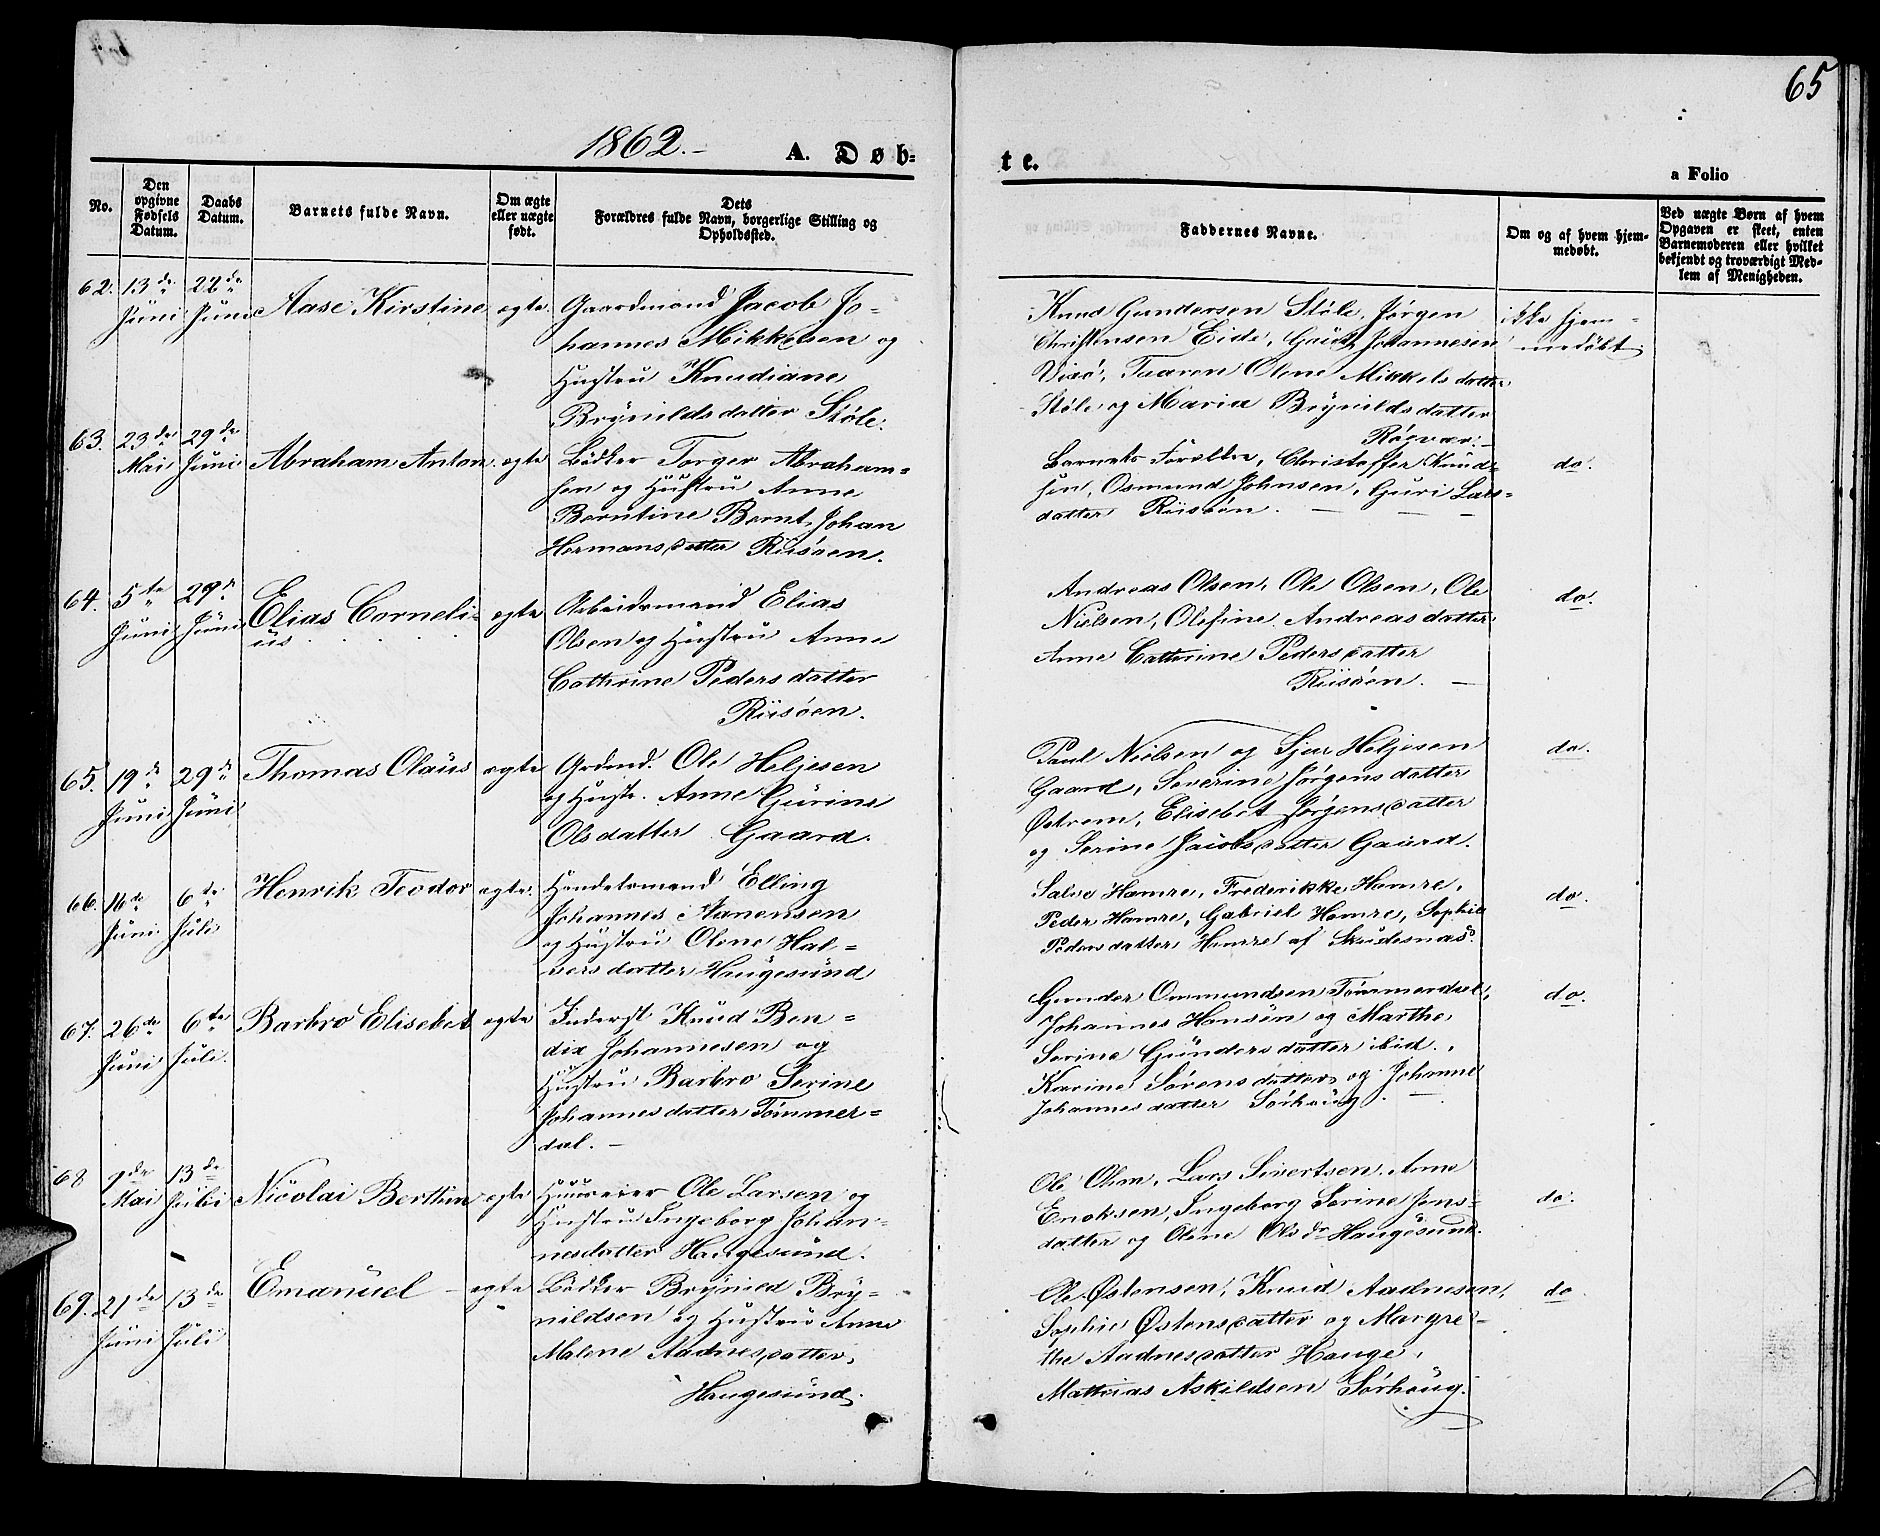 65
1862.-
A. Døb-
te.
a Folio
No.
Den
opgivne
Fødsels
Datum.
Daabs
Datum.
Barnets fulde Navn.
Om ægte
eller uægte
født.
Dets
Forældres fulde Navn, borgerlige Stilling og
Opholdssted.
Faddernes Navne.
Om og af hvem hjem-
medøbt.
Ved uægte Børn af hvem
Opgaven er skeet, enten
Barnemoderen eller hvilket
bekjendt og troværdigt Med-
lem af Menigheden.
62. 13de Juni 22de Juni Aase Kirstine ægte.
Gaardmand Jacob Jo-
hannes Mikkelsen og
Hustru Knudiane
Brynildsdatter Støle.
Knud Gundersen Støle, Jørgen
Christensen Eide, Johannesen
Tuaren Olene Mikkelsdatter
Støle og Maria Brynildsdatter
Røevær.-
ikke hjem-
medøbt.
63. 23de Mai 29de Juni Abraham Anton ægte
Bødker Torger Abraham-
sen og Hustru Anne
Berntine Bernt Johan
Hermansdatter Riisøen.
Barnets Forældre, Christoffer Knud-
sen, Osmund Johnsen, Guri Lars-
datter Riisøen.
do.
64. 5te Juni 29de Juni Elias Corneli-
us ægte
Arbeidsmand Elias
Olsen og Hustru Anne
Cathrine Pedersdatter
Riisøen.
Andreas Olsen, Ole Olsen, Ole
Nielsen, Olefine Andreasdatter
Anne Cathrine Pedersdatter
Riisøen.
do.
65. 19de Juni 29de Juni Thomas Olaus ægte
Grdmd. Ole Heljesen
og Hustr. Anne Gurine
Olsdatter Gaard.
Paul Nielsen og Sjur Heljesen
Gaard, Severine Jørgensdatter
Østrem, Elisebet Jørgensdatter
og Serine Jacobsdatter Gaard.
do.
66. 16de Juni 6te Juli Henrik Teodor ægte.
Handelsmand Elling
Johannes Aanensen
og Hustru Olene Hal-
vorsdatter Haugesund
Hamre, Frederikke Hamre,
Peder Hamre, Gabriel Hamre, Sophie
Pedersdatter Hamre af Skudesnæs.
do.
67. 26de Juni 6te Juli. Barbro Elisebet ægte
Inderst Knud Ben-
dix Johannesen og
Hustru Barbro Serine
Johannesdatter Tømmer-
dal.-
Gunder Ommundsen Tømmerdal,
Johannes Hansen og Marthe
Serine Gundersdatter ibid.,
Karine Sørensdatter og Johanne
Johannesdatter Sørhaug.
do.
68 9de Mai 13de Juli Nicolai Berthin ægte
Huuseier Ole Larsen og
Hustru Ingeborg Johan-
nesdatter Haugesund.
Ole Ohm, Lars Sivertsen, Arne
Enoksen, Ingeborg Serine Jens-
datter og Olene Olsdr Haugesund.
do.
69. 21de Juni 13de Juli Emanuel - ægte
Bødker Brynild Bry-
nildsen og Hustru Anne
Malene Aadnesdatter,
Haugesund.
Ole Østensen, Knud Aadnesen,
Sophie Østensdatter og Margre-
the Aadnesdatter Hauge,
Mathias Askildsen Sørhaug.
do